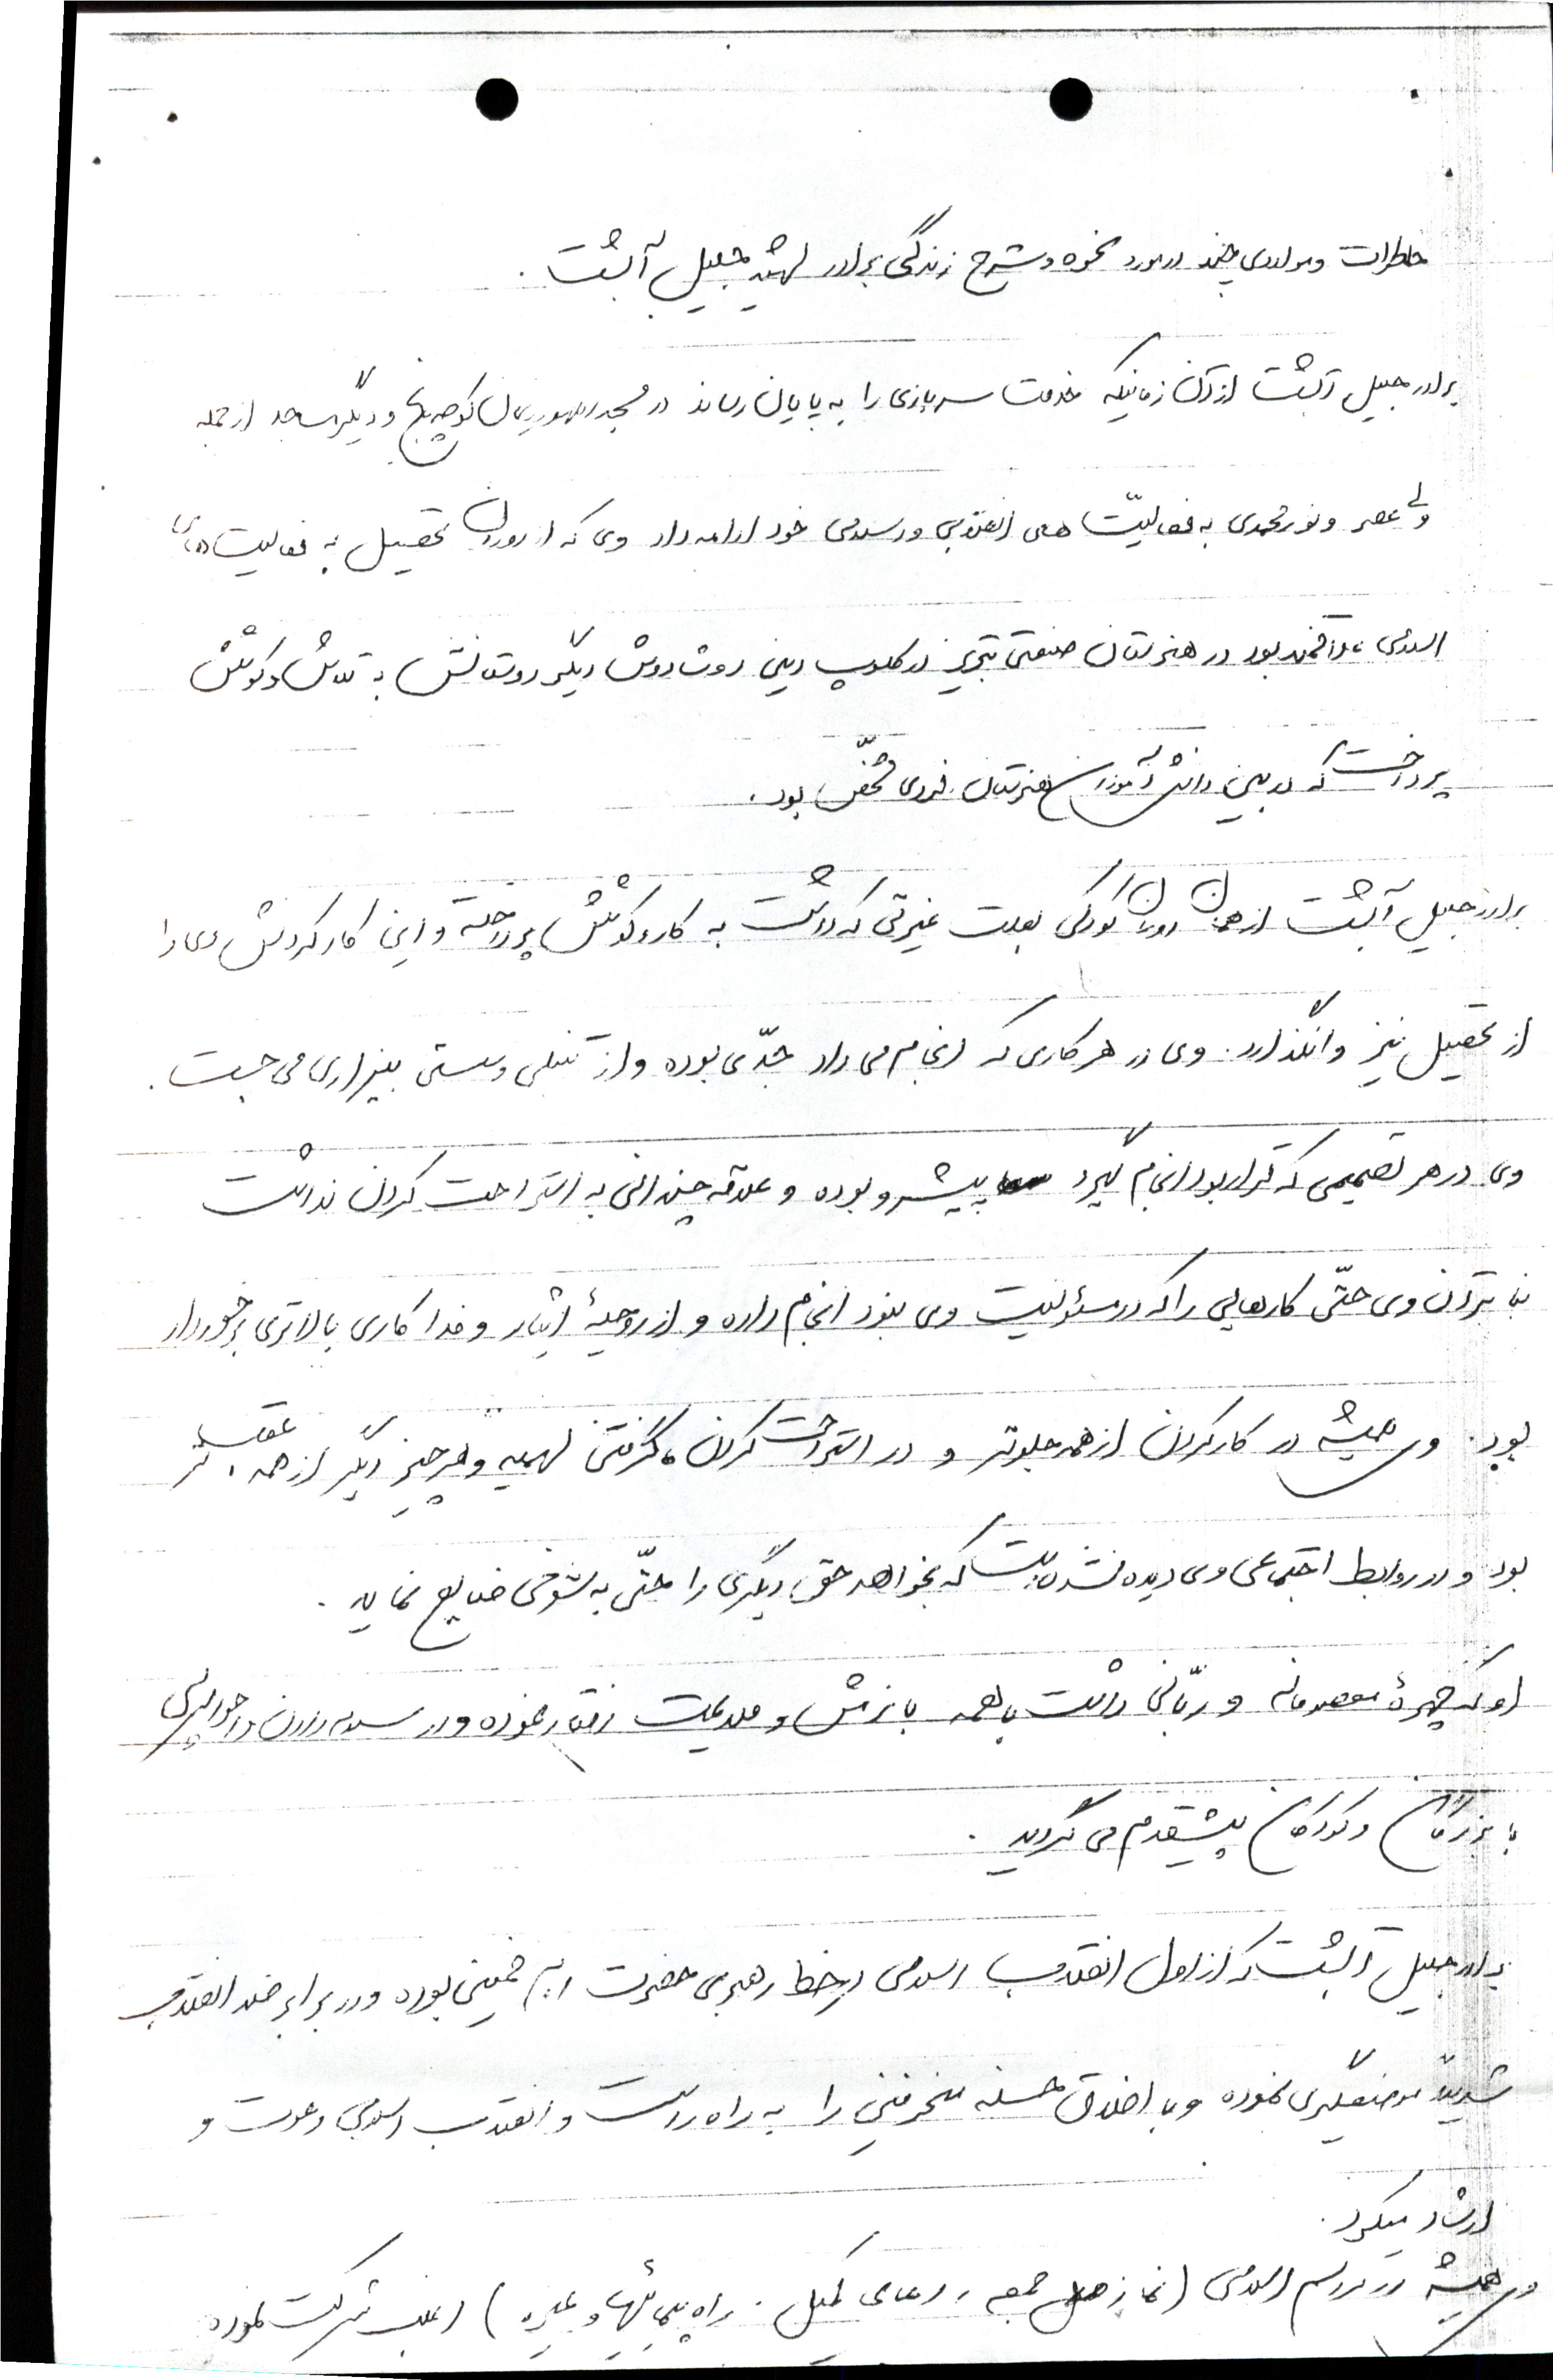 خاطرات و مواردی چند در مورد نحوه و شرح زندگی برادر شهید جلیل آبشت .
برادر جلیل آبشت از آن زمانیکه خدمت سربازی را به پایان رساند در مسجد و دیگر مساجد از جمله
ولی عصر و نور محمدی به فعالیّت های انقلابی و اسلامی خود ادامه داد وی که از دوران تحصیل به فعالیت های
اسلامی علاقمند بود در هنرستان صنعتی تبریز در کلوپ دینی دوش دوش دیگر دوستانش به تلاش و کوشش
پرداخت که در بین دانش آموزان هنرستان فردی مشخّص بود .
برادر جلیل آبشت از همان دوران کودکی بعلت غیرتی که داشت به کار و کوشش پرداخته و این کار کردنش وی را
از تحصیل نیز وانگذارد . وی در هر کاری که انجام می داد جدّی بوده و از تنبلی و سستی بیزاری می جست .
وی در هر تصمیمی که قرار بود انجام گیرد پیشرو بوده و علاقه چندانی به استراحت کردن نداشت
بنا برآن وی حتّی کارهایی را که در مسئولیت وی نبود انجام داده و از روحیهٔ ایثار و فدا کاری بالاتری برخوردار
بود . وی همیشه در کار کردن از همه جلوتر و در استراحت کردن و گرفتن سهمیه و هر چیز دیگر از همه عقب تر
بود و در روابط اجتماعی وی دیده نشده است که بخواهد حق دیگری را حتّی به شوخی ضایع نماید .
او که چهرهٔ معصومانه و ربّانی داشت با همه با نرمش و ملایمت رفتار نموده و در سلام دادن و احوالپرسی
با بزرگان و کودکان پیشقدم می گردید .
برادر جلیل آبشت که از اول انقلاب اسلامی در خط رهبری حضرت امام خمینی بوده و در برابر ضد انقلاب
شدیداً موضعگیری نموده و با اخلاق حسنه منحرفین را به راه راست و انقلاب اسلامی دعوت و
ارشاد میکرد .
وی همیشه در مراسم اسلامی ( نماز جمعه ، دعای کمیل . راه پیمائیها و غیره ) اغلب شرکت نموده